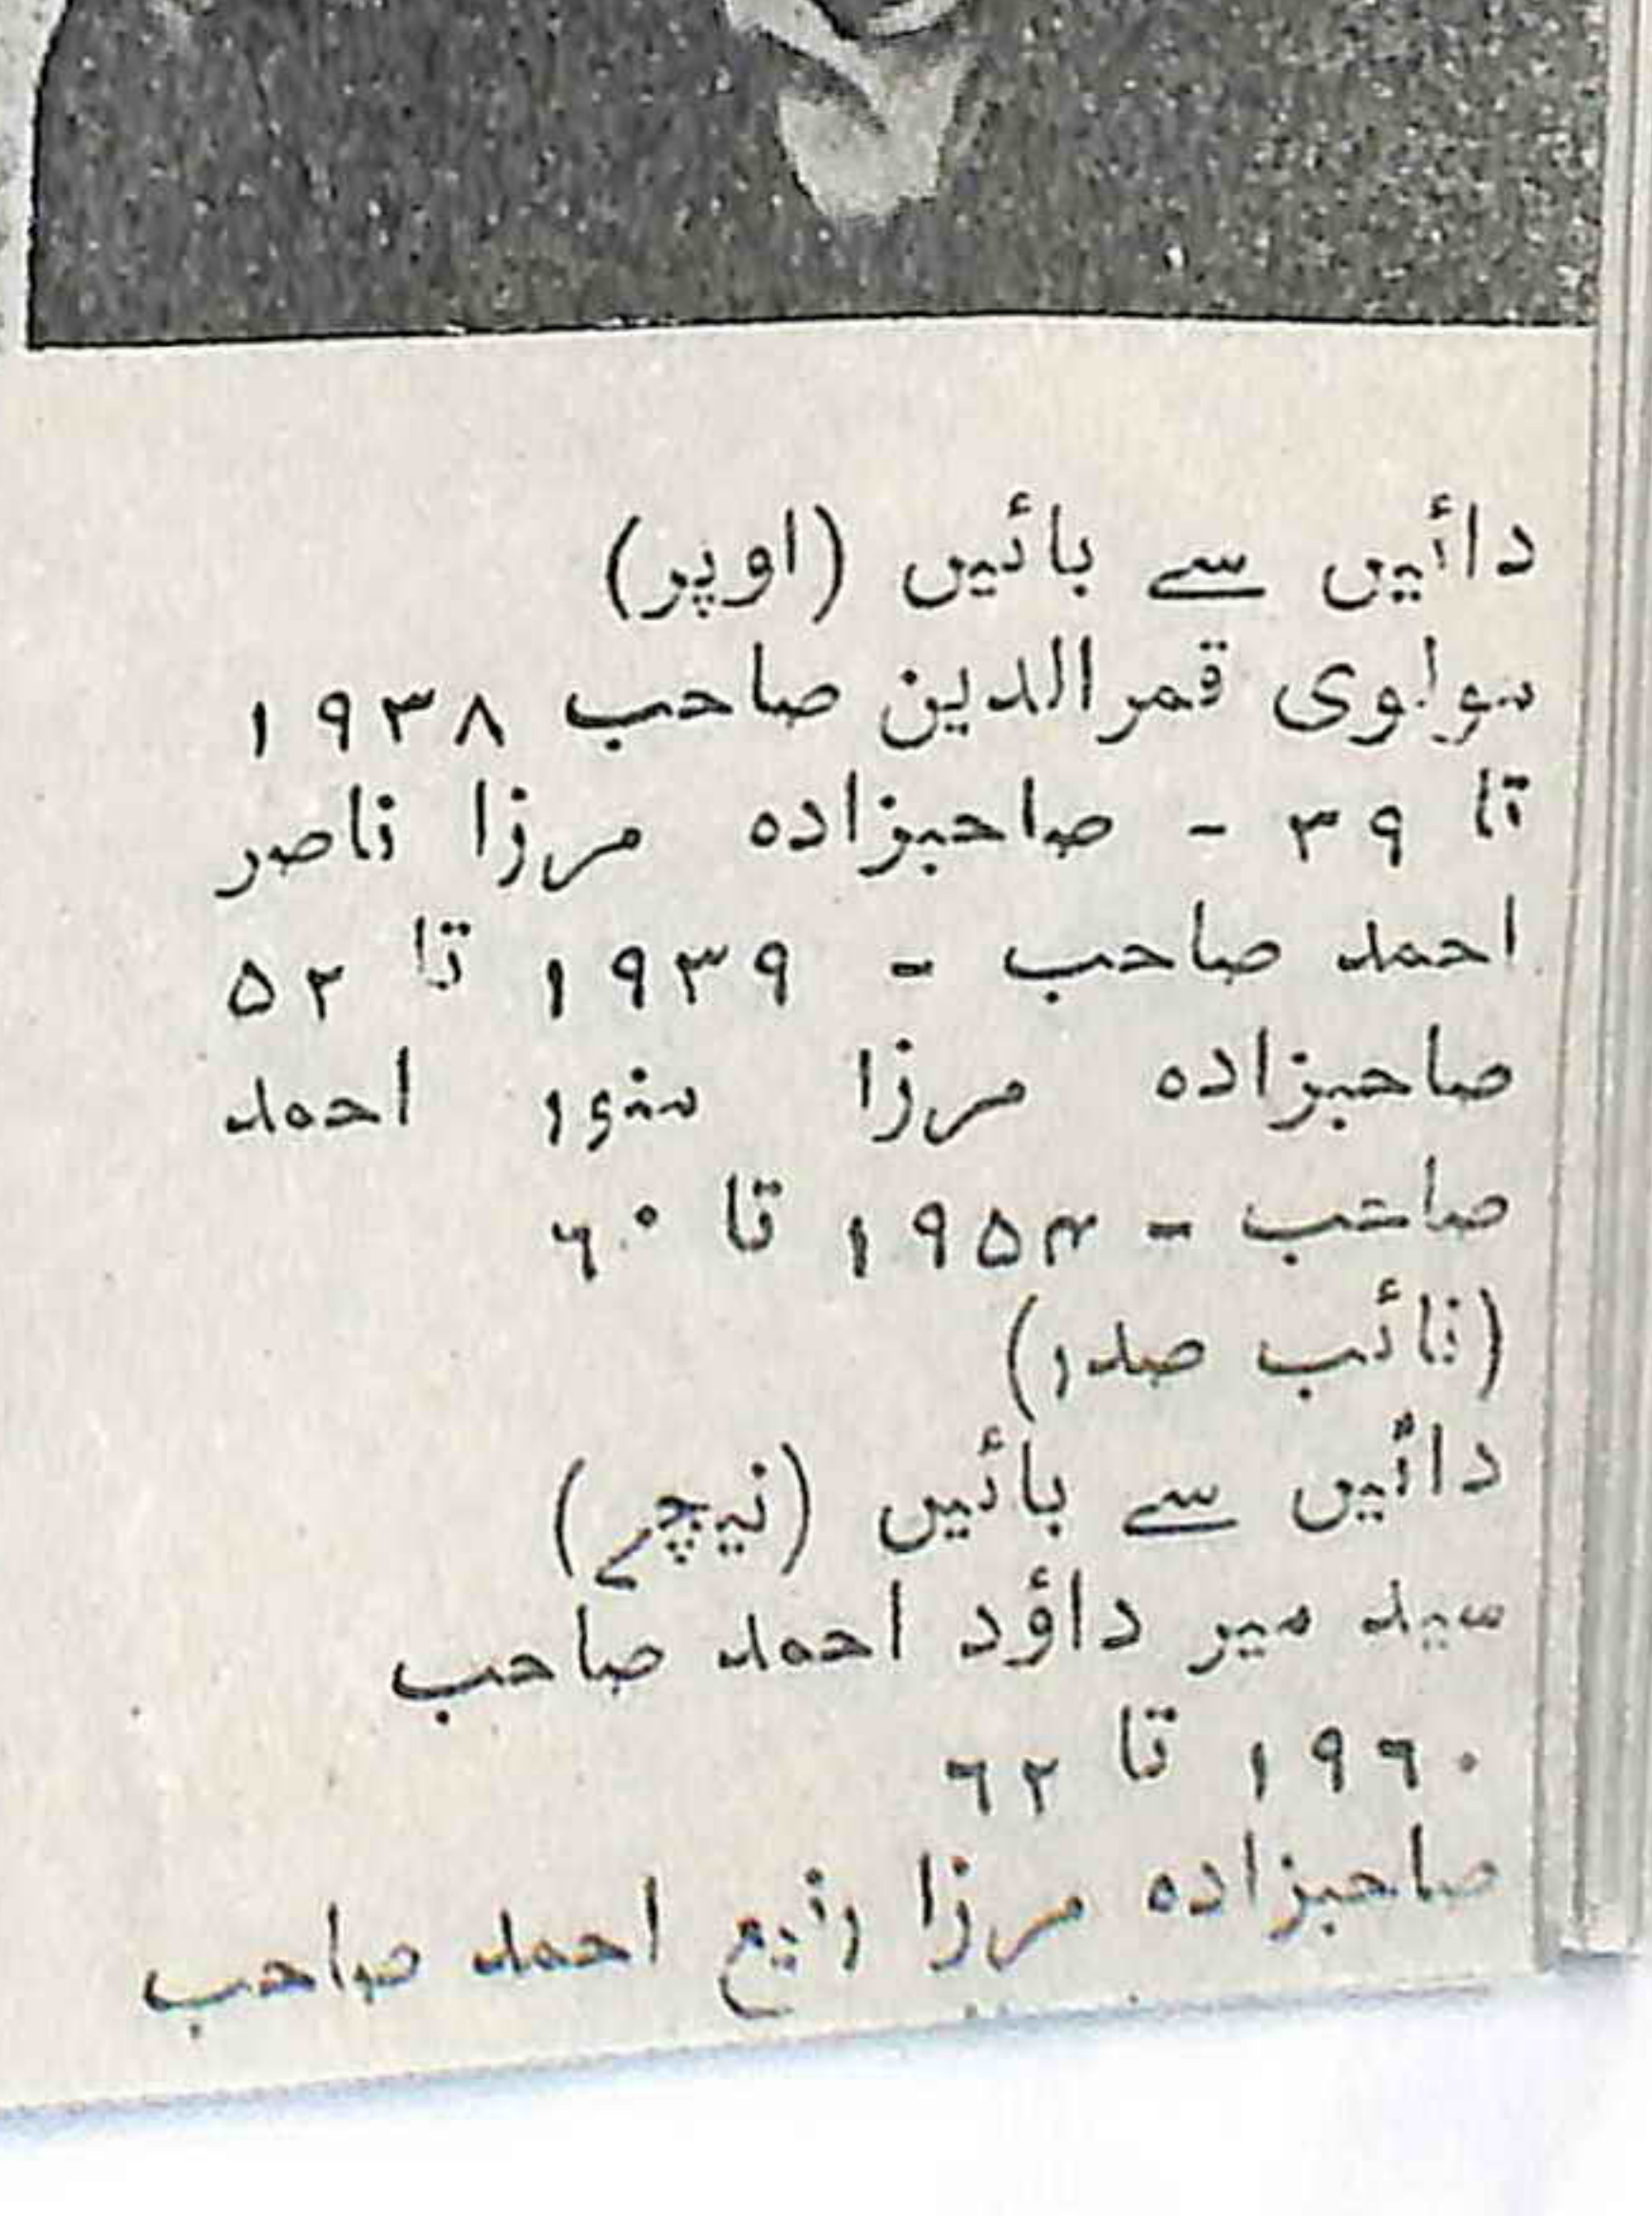 دائیں سے بائیں (اوپر)
مولوی قمرالدین صاحب ۱۹۳۸
تا ۳۹ - صاحبزادہ مرزا ناصر
احمد صاحب - ۱۹۳۹ تا ۵۲
صاحبزادہ مرزا منور احمد
صاحب - ۱۹۵۴ تا ۶۰
(نائب صدر)
دائیں سے بائیں (نیچے)
سید میر داؤد احمد صاحب
۱۹۶۰ تا ۶۲
صاحبزادہ مرزا رفیع احمد صاحب